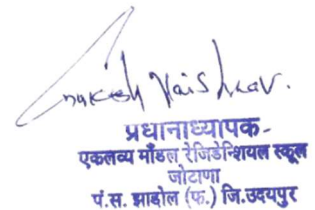 Mukesh Vaishnav.
प्रधानाध्यापक
एकलव्य मॉडल रेजिडेन्शियल स्कूल
जोटाणा
पं.स. झाडोल (फ.) जि.उदयपुर